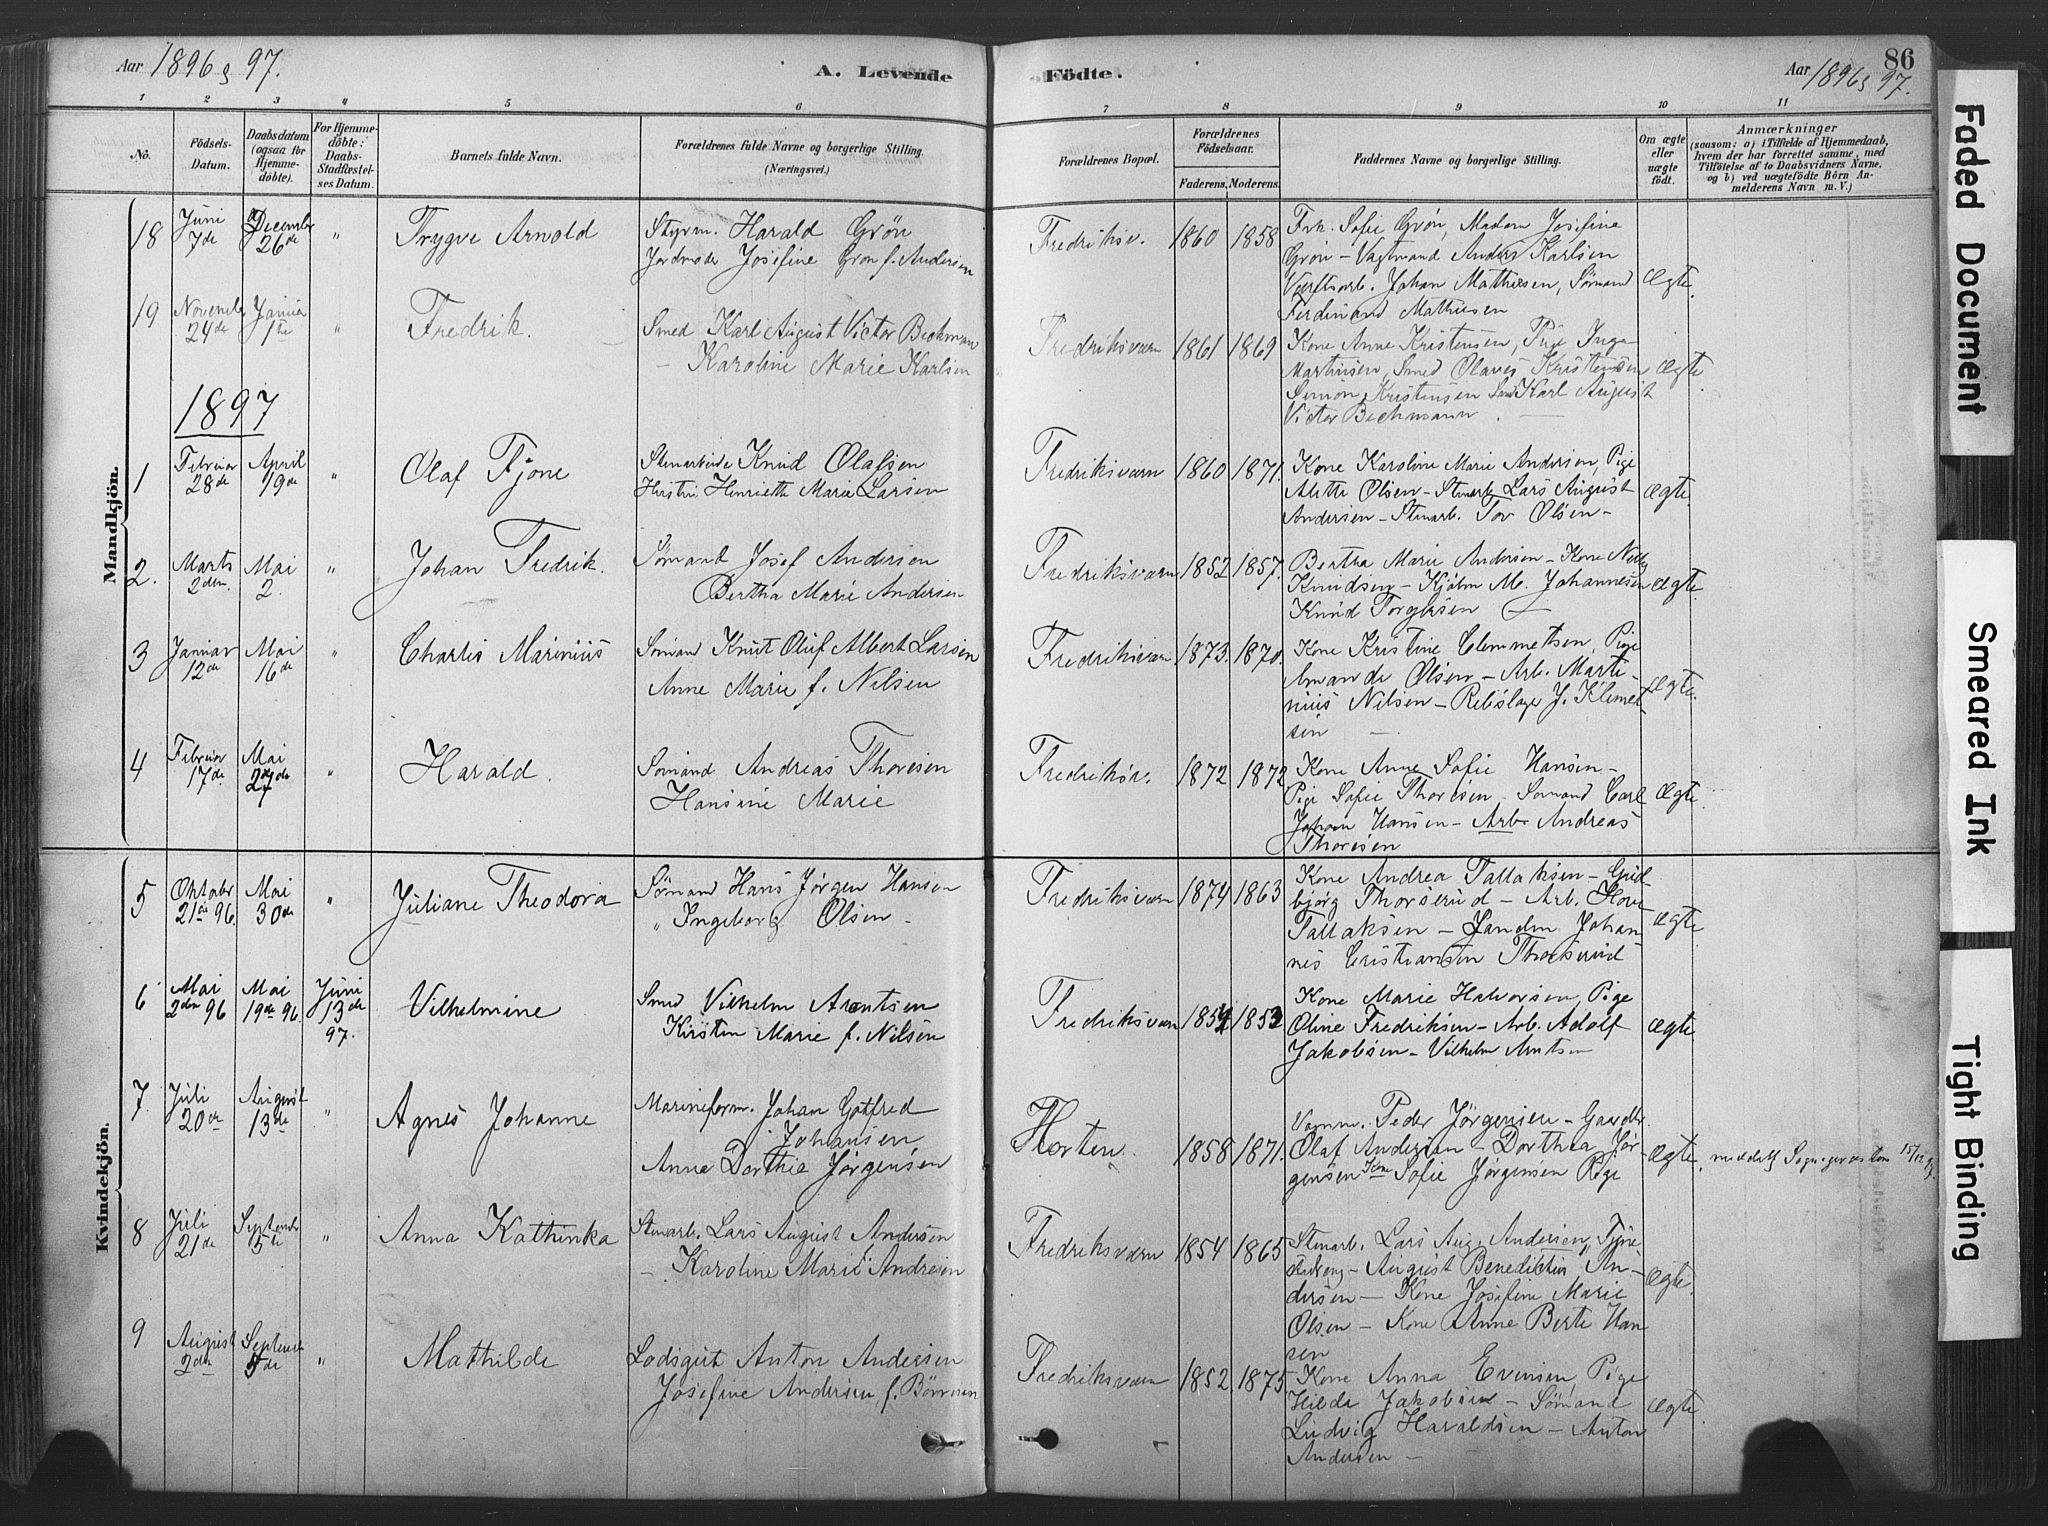 Aar 1896 & 97.
A. Levende Födte.
Aar 1896 & 97.
86
1 2 3 4 5 6 7 8 9 10 11
No.
Födsels-Datum.
Daabsdatum (ogsaa for Hjemmedöbte).
For Hjemmedöbte: Daabs-Stadfæstelses Datum.
Barnets fulde Navn.
Forældrenes fulde Navne og borgerlige Stilling. (Næringsvei.)
Forældrenes Bopæl.
Forældrenes Födselsaar.
Faderens. Moderens.
Faddernes Navne og borgerlige Stilling.
Om ægte eller uægte födt.
Anmærkninger
(saasom: a) i Tilfælde af Hjemmedaab, hvem der har forrettet samme, med Tilföielse af to Daabsvidners Navne, og b) ved uægtefödte Börn Anmelderens Navn m. V.)
Mandkjön.
18 Juni 7de December 26de " Trygve Arnold
Styrm. Harald Grön
Jordmoder Josefine Gron f. Andersen
Fredriksv. 1860 1858
Frk. Sofie Grön, Madam Josefine
Grön - Vagtmand Anders Karlsen
Værftsarb. Johan Mathisen, Sömand
Ferdinand Mathisen
Ægte.
19 November 24de Januar 1ste " Fredrik.
Smed Karl August Victor Beckman
- Karoline Marie Karlsen
Fredriksværn 1861 1869
Kone Anne Kristensen, Pige Inga
Martinsen, Smed Olaves Kristensen
Simon Kristensen Karl August
Victor Beckmann. -
Ægte
1897
1 Februar 28de April 19de " Olaf Fjone
Stenarbeide Knud Olafsen
Henriette Marie Larsen
Fredriksværn 1860 1871.
Kone Karoline Marie Andersen, Pige
Alette Olsen - Stenarb. Lars August
Andersen - Stenarb. Tov Olsen -
Ægte.
2. Marts 2den Mai 2. " Johan Fredrik.
Sömand Josef Andersen
Bertha Marie Andersen
Fredriksværn 1852 1857.
Bertha Marie Andersen - Kone Nelly
Knudsen - Kjöbm M. Johannesen
Knud Torgersen
Ægte.
3 Januar 12de Mai 16de " Charles Marinius
Sömand Knut Oluf Albert Larsen
Anne Marie f. Nilsen
Fredriksværn 1873. 1870.
Kone Kristine Clemmetsen, Pige
Amanda Olsen - Arb. Marti-
nius Nilsen - Rebslager J. Klemet-
sen -
Ægte.
4 Februar 17de Mai 27de " Harald.
Sömand Andreas Thoresen
Hansine Marie
Fredriksv. 1872 1872
Kone Anne Sofie Hansen -
Pige Sofie Thoresen - Sömand Carl
Johan Hansen - Arb. Andreas
Thoresen
Ægte.
Kvindekjön.
5 Oktober 21de 96. Mai 30de " Juliane Theodora
Sömand Hans Jörgen Hansen
" Ingeborg Olsen -
Fredriksværn 1874 1863
Kone Andrea Tallaksen - Gud-
björg Thorserud - Arb.
Tallaksen - Johan-
nes Cristiansen Thorserud
Ægte
6 Mai 2den 96 Mai 19de 96. Juni 13de 97. Vilhelmine
Smed Vilhelm Arentsen
Kirsten Marie f. Nilsen
Fredriksværn
Kone Marie Halvorsen, Pige
Oline Fredriksen - Arb. Adolf
Jakobsen - Vilhelm Arntsen
Ægte
7. Juli 20de August 13de " Agnes Johanne
Marineform. Johan Gotfred
Johansen
Anne Dorthie Jørgensen
Horten. 1858 1871.
Peder Jørgensen - Gaardbr.
Olaf Andersen - Dorthea Jør-
gensen Kone Sofie Jørgensen Pige
Ægte. meddelt Sognepræsten 15/12 97.
8 Juli 21de September 5te " Anna Kathinka
Stenarb. Lars August Andersen
- Karoline Marie Andresen
Fredriksværn 1854 1865
Stenarb. Lars Aug. Andersen,
- August Benedikten An-
dersen - Kone Josefine Marie
Olsen - Kone Anne Birte Han-
sen
Ægte.
9 August 2den September " Mathilde
Lodsgut Anton Andersen
Josefine Andersen f.
Fredriksværn 1852 1875
- Kone Anna Evensen, Pige
Hilda Jakobsen - Sömand
Ludvig Haraldsen - Anton
Andersen -
Ægte.
Faded Document
Smeared Ink
Tight Binding